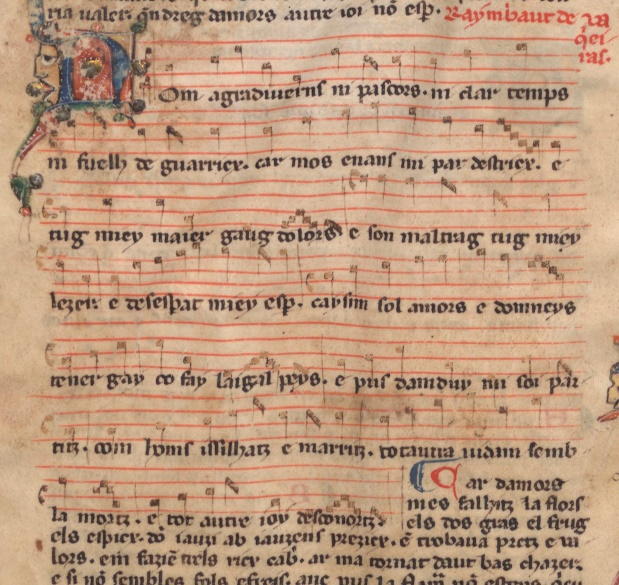 ria ualer. qn dreg damors autre ioi nō esp. Raymbaut de va
qei
ras.
Nom agradiuerns ni pascors. ni clar temps
ni fuelh de guarrier. car mos enans mi par destrier. e
tug miey maier gaug dolors. e son maltrag tug miey
lezer. e desesperat miey esp. caysim sol amors e domneys
tener gay co fay laiga.l peys. e pus damduy mi soi par
titz. com homs issilhatz e marritz. tot autra uidam semb
la mortz. e tot autre ioy desconortz.
Car damors
mes falhitz la flors
els dos gras el frug
els espier. dō iauzi ab iauzens prezier. e trobaua pretz e ua
lors. em fazie tels rier cab. ar ma tornat daut bas chazer.
e si nō sembles fols esfreis. anc pus la flam nō esteys